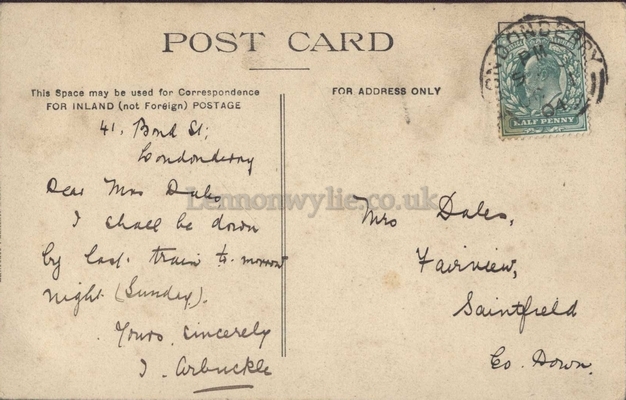 POST CARD
This Space may be used for Correspondence
FOR INLAND (not Foreign) POSTAGE
FOR ADDRESS ONLY
HALF PENNY
LONDONDERRY
04
41, Bond St;
Londonderry
Dear Mrs Dales
I shall be down
by last train to-morrow
night (Sunday).
Yours sincerely
J. Arbuckle
Mrs Dales,
Fairview,
Saintfield
Co. Down.
Lennonwylie.co.uk